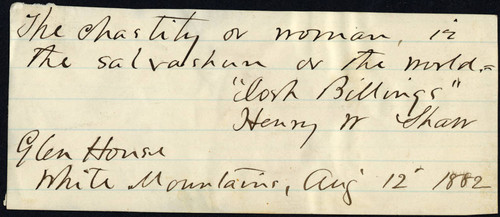 The chastity ov woman, iz
the salvashun ov the world.=
"Josh Billings"
Henry W Shaw
Glen House
White Mountains, Aug 12" 1882